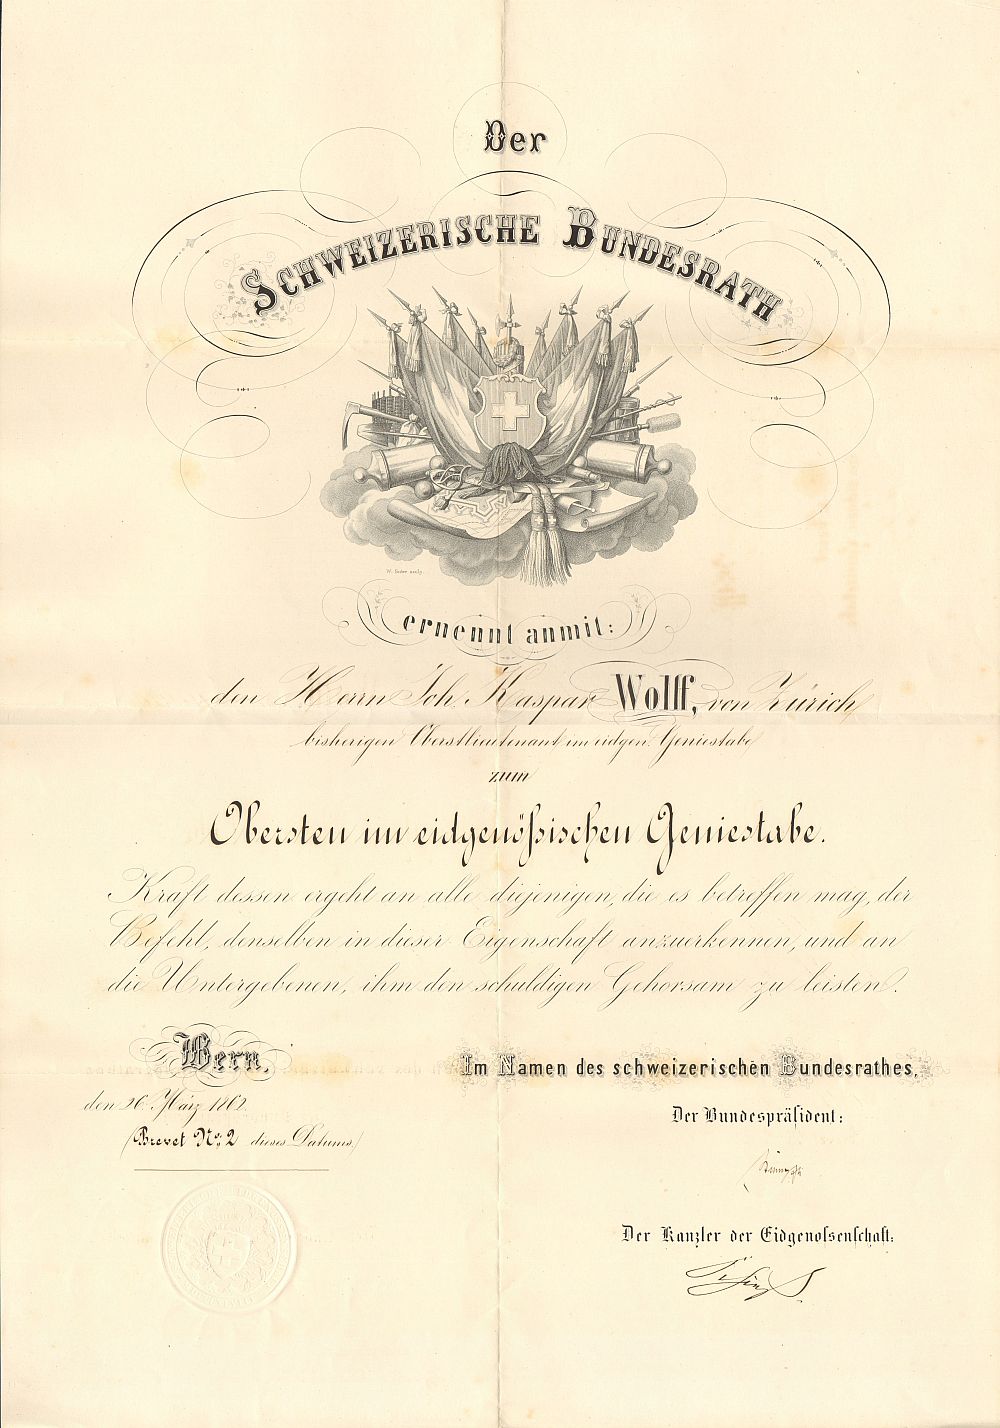 Der
SCHWEIZERISCHE BUNDESRATH
ernennt anmit:
den Herrn Joh. Kaspar Wolff, von Zürich,
bisherigen Oberstlieutenant im eidgen. Geniestabe
zum
Obersten im eidgenößischen Geniestabe.
Kraft dessen ergeht an alle diejenigen, die es betreffen mag, der
Befehl, denselben in dieser Eigenschaft anzuerkennen, und an
die Untergebenen, ihm den schuldigen Gehorsam zu leisten.
Bern,
den 26. März 1862.
(Brevet No. 2 dieses Datums.)
Im Namen des schweizerischen Bundesrathes,
Der Bundespräsident:
Der Kanzler der Eidgenossenschaft: